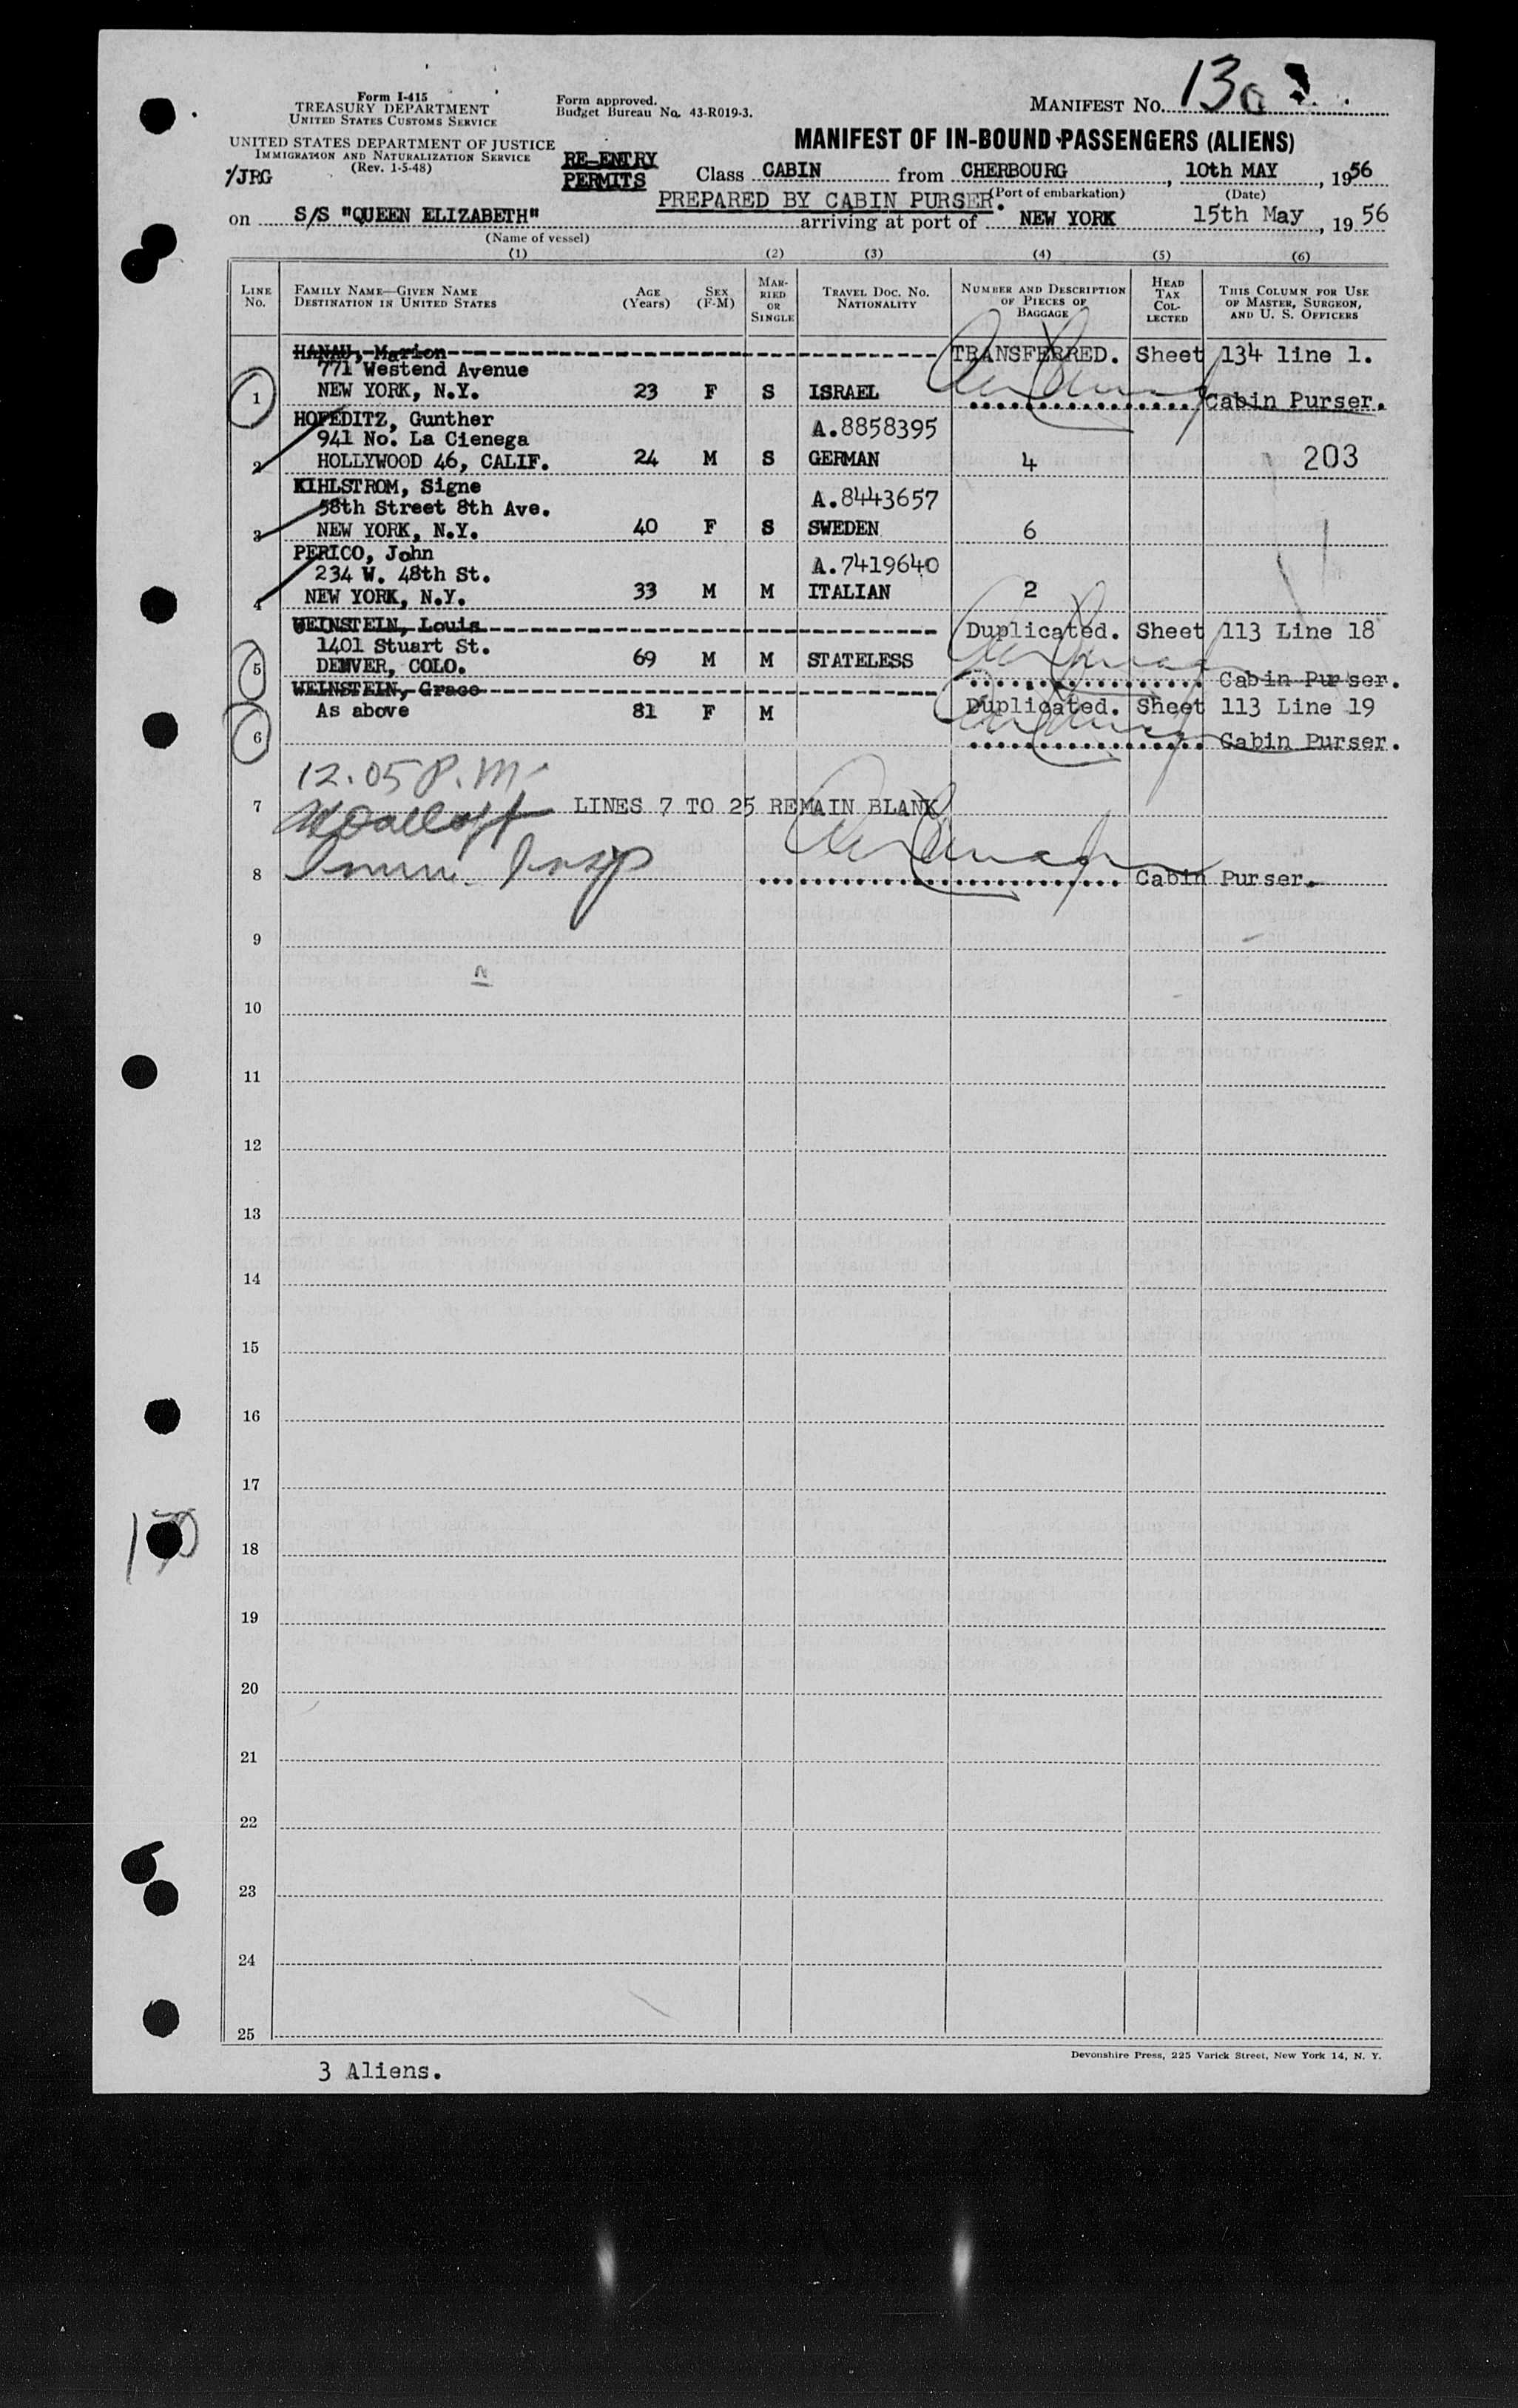 Form I-415
TREASURY DEPARTMENT
UNITED STATES CUSTOMS SERVICE
UNITED STATES DEPARTMENT OF JUSTICE
IMMIGRATION AND NATURALIZATION SERVICE
(Rev. 1-5-48)
Form approved.
Budget Bureau No. 43-R019-3.
MANIFEST No. 130
MANIFEST OF IN-BOUND PASSENGERS (ALIENS)
/JRG
RE-ENTRY
PERMITS
Class CABIN from CHERBOURG, 10th MAY, 1956
(Port of embarkation) (Date)
PREPARED BY CABIN PURSER.
on S/S "QUEEN ELIZABETH" arriving at port of NEW YORK 15th May, 1956
(Name of vessel)
(1) (2) (3) (4) (5) (6)
LINE No. FAMILY NAME—GIVEN NAME DESTINATION IN UNITED STATES AGE (Years) SEX (F-M) MARRIED OR SINGLE TRAVEL DOC. No. NATIONALITY NUMBER AND DESCRIPTION OF PIECES OF BAGGAGE HEAD TAX COLLECTED THIS COLUMN FOR USE OF MASTER, SURGEON, AND U. S. OFFICERS
HANAU, Marion TRANSFERRED. Sheet 134 line 1.
771 Westend Avenue
1 NEW YORK, N.Y. 23 F S ISRAEL Cabin Purser.
HOFEDITZ, Gunther A.8858395
941 No. La Cienega
2 HOLLYWOOD 46, CALIF. 24 M S GERMAN 4 203
KIHLSTROM, Signe A.8443657
58th Street 8th Ave.
3 NEW YORK, N.Y. 40 F S SWEDEN 6
PERICO, John A.7419640
234 W. 48th St.
4 NEW YORK, N.Y. 33 M M ITALIAN 2
WEINSTEIN, Louis Duplicated. Sheet 113 Line 18
1401 Stuart St.
5 DENVER, COLO. 69 M M STATELESS Cabin Purser.
WEINSTEIN, Grace
As above 81 F M Duplicated. Sheet 113 Line 19
6 Cabin Purser.
12.05 P.M.
7 LINES 7 TO 25 REMAIN BLANK
Immi. Insp
8 Cabin Purser.
9
10
11
12
13
14
15
16
17
130
18
19
20
21
22
23
24
25
Devonshire Press, 225 Varick Street, New York 14, N. Y.
3 Aliens.